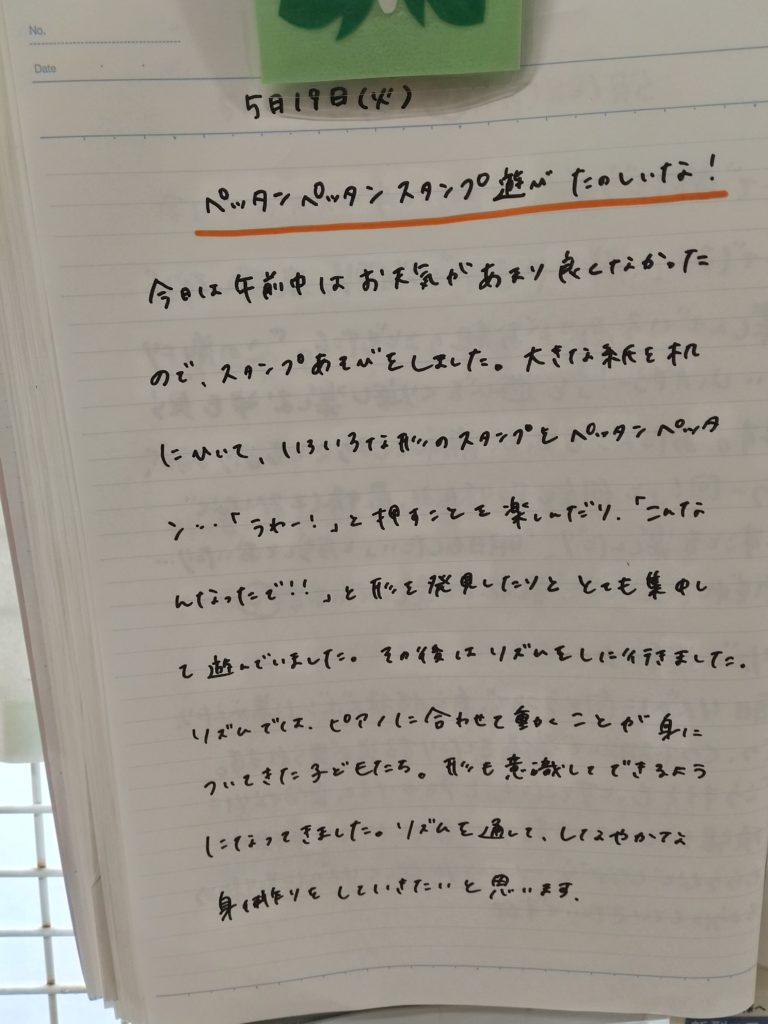 No.
Date
5月19日(火)
ペッタンペッタンスタンプ遊び たのしいな!
今日は午前中はお天気があまり良くなかった
ので、スタンプあそびをしました。大きな紙を机
にひいて、いろいろな形のスタンプをペッタンペッタ
ン…「うわー!」と押すことを楽しんだり、「こんな
んなったで!!」と形を発見したりと とても集中し
て遊んでいました。その後はリズムをしに行きました。
リズムでは、ピアノに合わせて動くことが身に
ついてきた子どもたち。形も意識してできるよう
になってきました。リズムを通して、しなやかな
身体作りをしていきたいと思います。